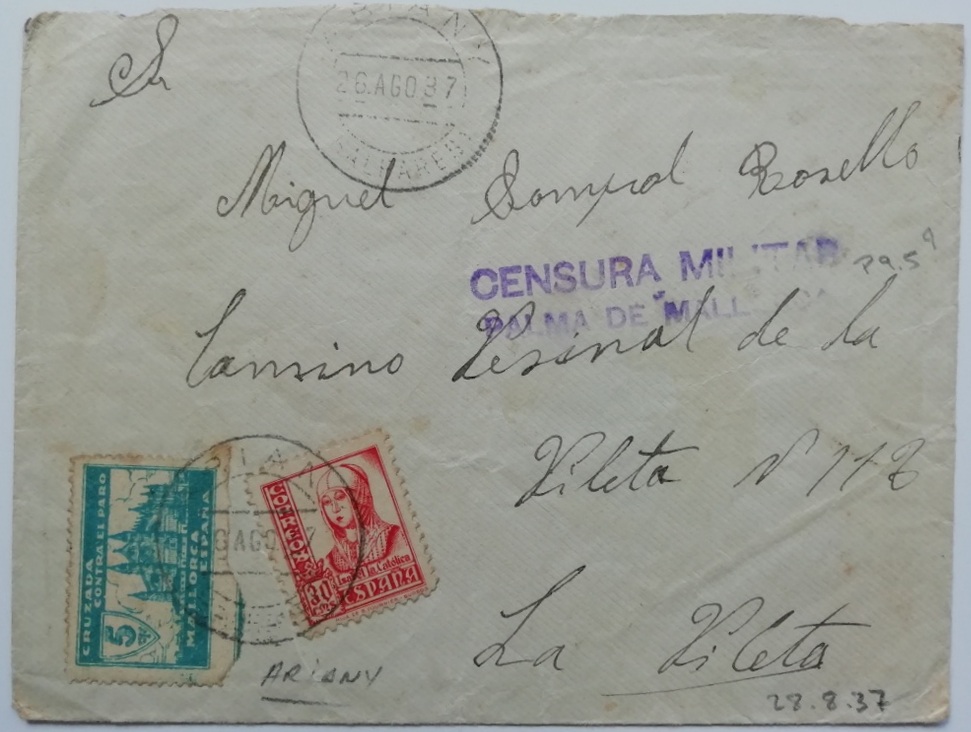 Sr
ARIANY
26.AGO.37
BALEARES
Miguel Rosello
CENSURA MILITAR
29.5
PALMA DE MALLORCA
Camino Vesinal de la
Vileta Nº 117
La Vileta
CRUZADA
CONTRA EL PARO
5
MALLORCA
ESPAÑA
CORREOS
Isabel la Católica
30
CTS
ESPAÑA
26 AGO 37
ARIANY
28.8.37